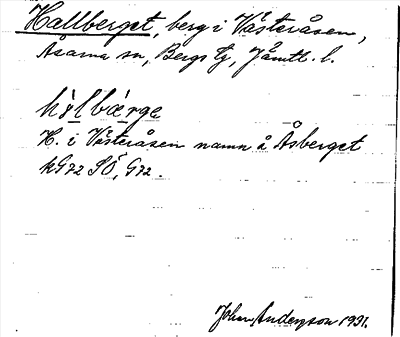 Hallberget, berg i Västeråsen,
Åsarna sn, Bergs tg, Jämtl. l.
H. i Västeråsen namn å Åsberget
kG72 SÖ, G72.
Johan Anderson 1931.